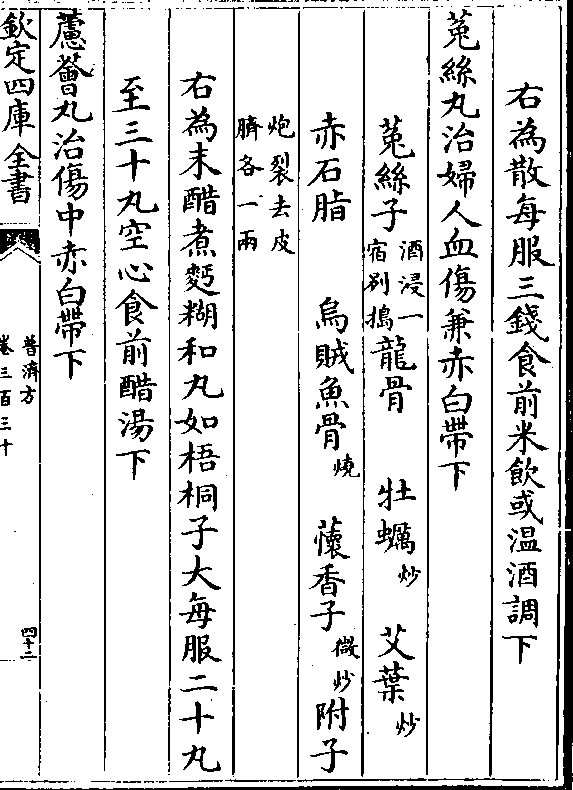 右為散每服三錢食前米飲或温酒調下
菟絲丸治婦人血傷兼赤白帶下
菟絲子酒浸一宿别搗龍骨　牡蠣炒　艾葉炒
赤石脂　烏賊魚骨燒　蘹香子微炒附子
炮裂去皮臍各一兩
右為末醋煮麪糊和丸如梧桐子大每服二十丸
至三十丸空心食前醋湯下
蘆薈丸治傷中赤白帶下
欽定四庫全書
普濟方
卷三百三十
四十二